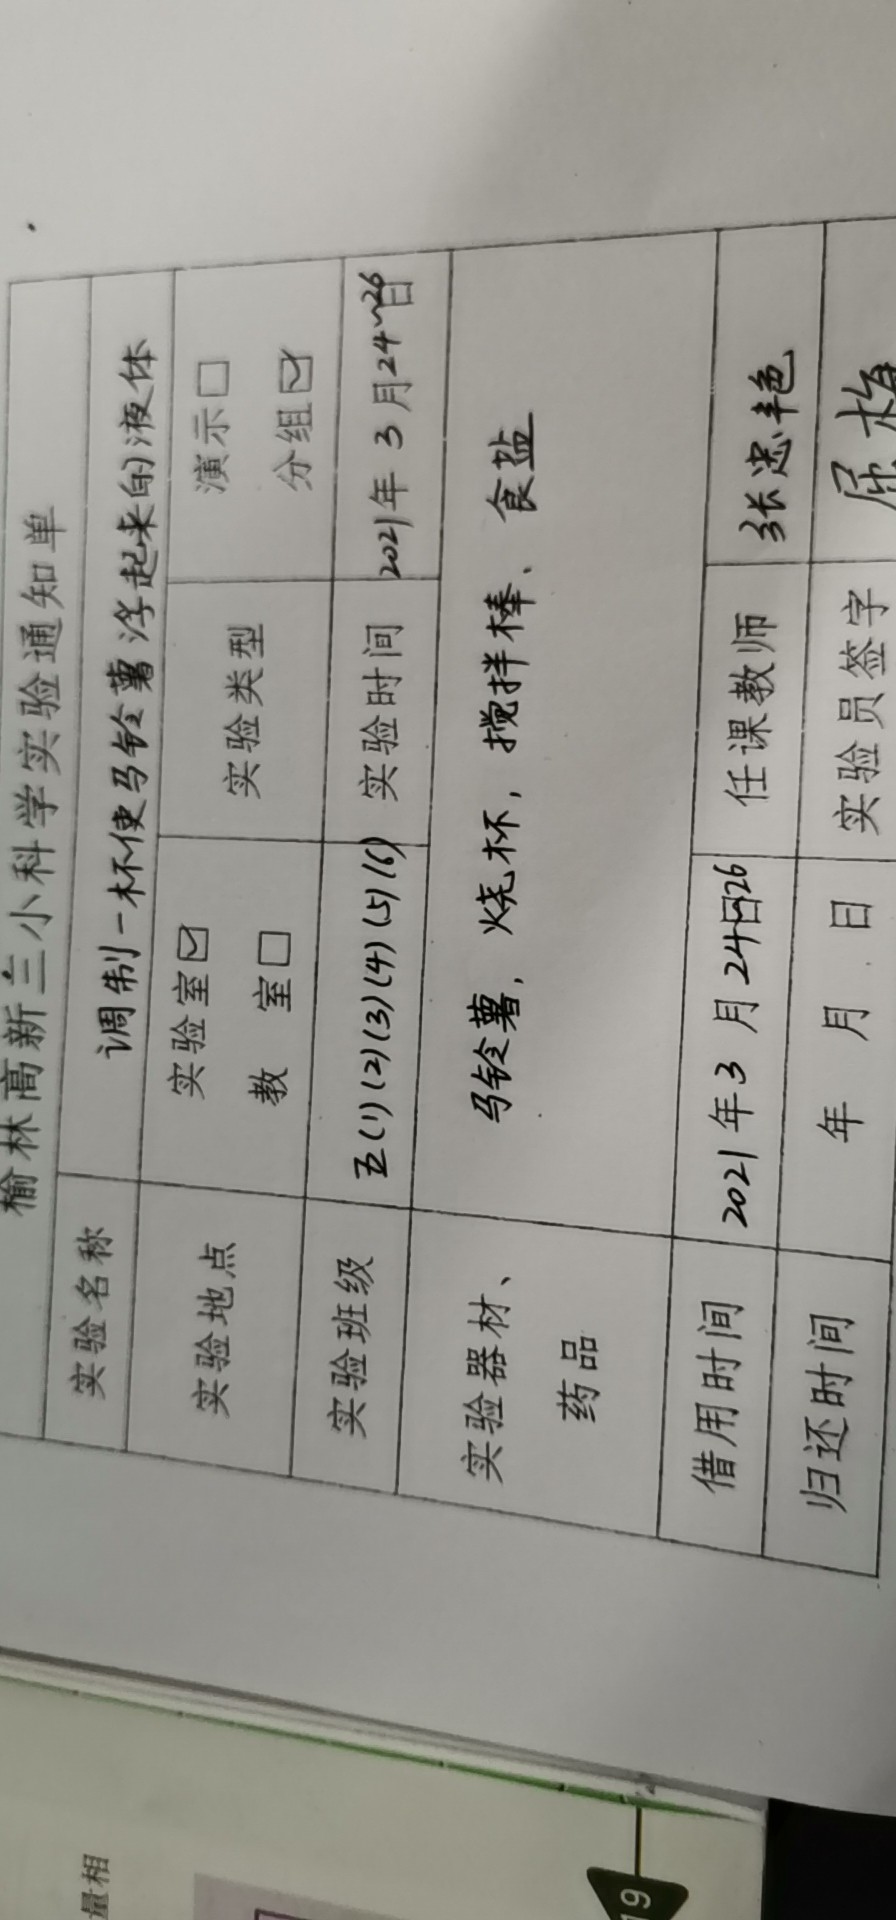 榆林高新三小科学实验通知单
实验名称 调制一杯使马铃薯浮起来的液体
实验地点 实验室☑ 教 室□ 实验类型 演示□ 分组☑
实验班级 五(1)(2)(3)(4)(5)(6) 实验时间 2021年3月24~26日
实验器材、药品 马铃薯，烧杯，搅拌棒、食盐
借用时间 2021年3月24日~26 任课教师 张忠艳
归还时间 年 月 日 实验员签字 屈
量相
19